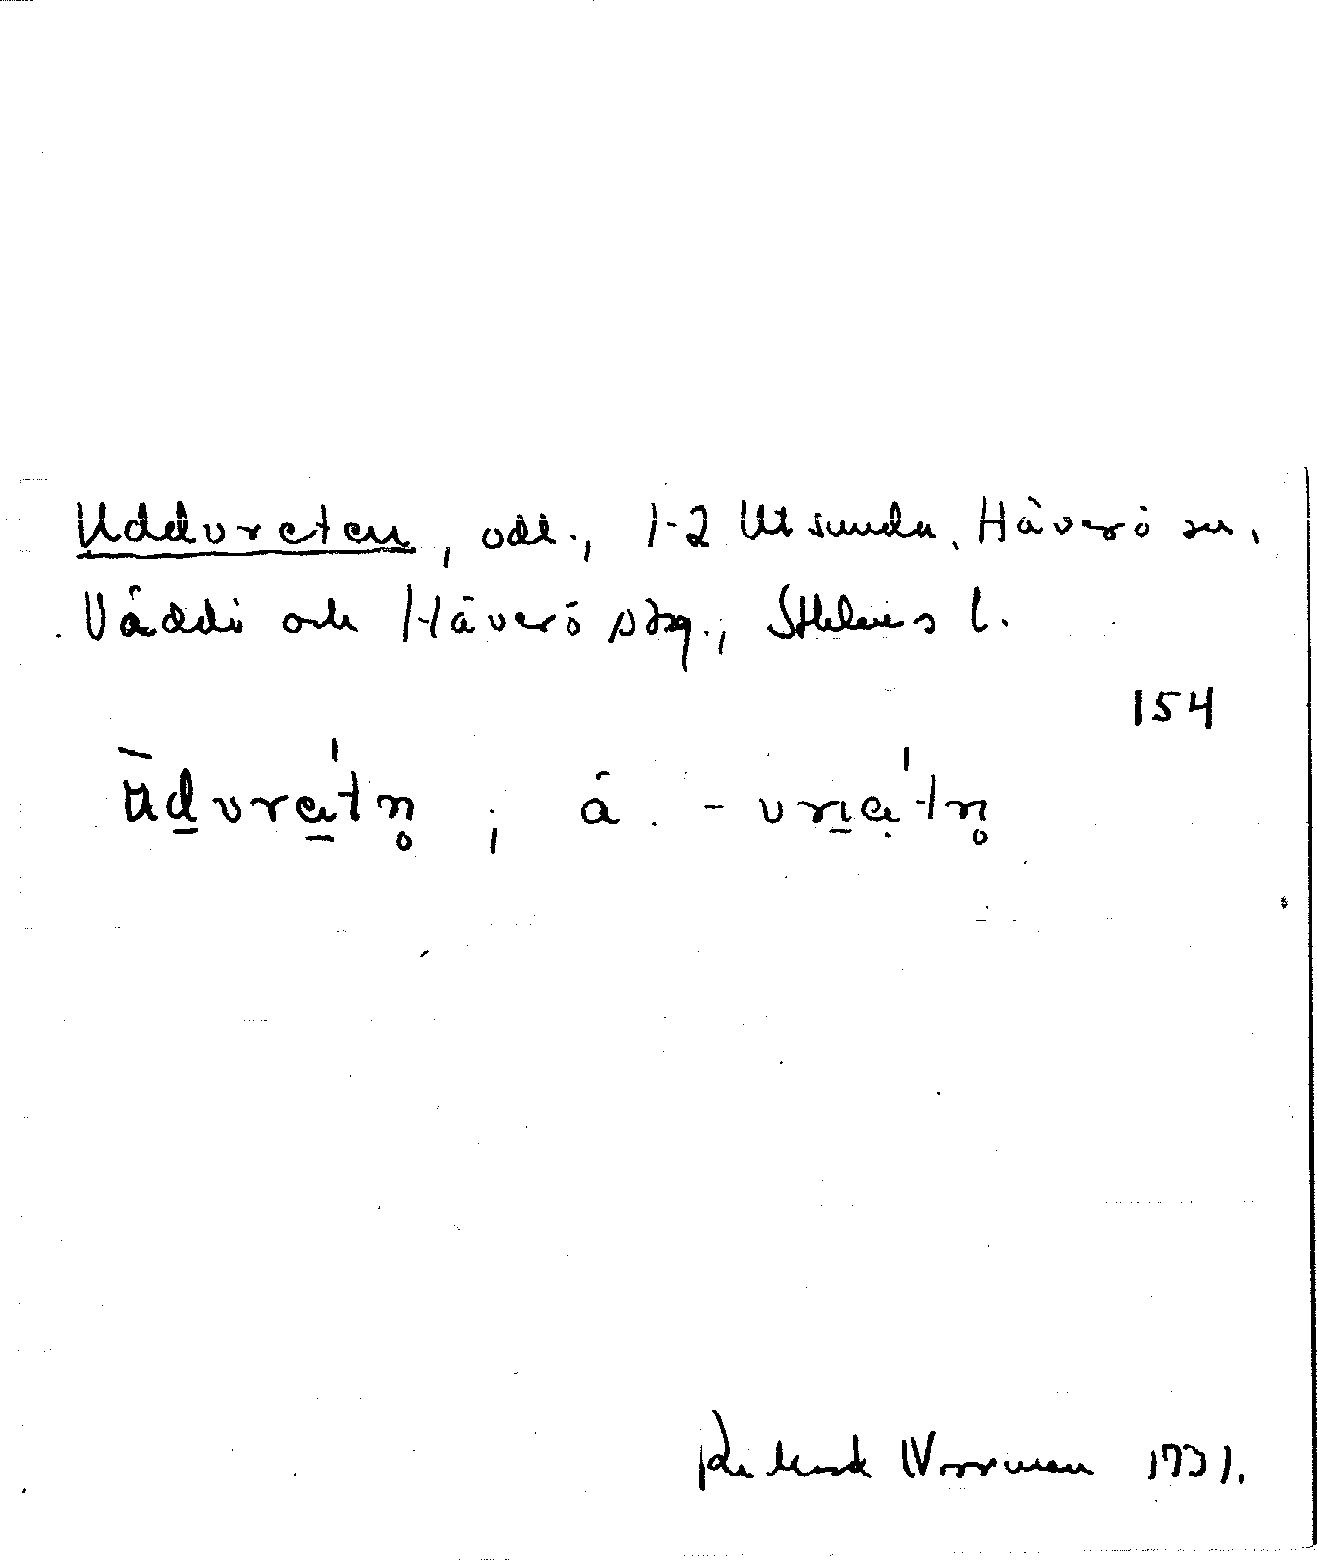 Uddvreten, odl., 1-2 Utsunda, Häverö sn,
Väddö och Häverö skg., Sthlms l.
154
ūdvrætn̥ ; ä. - vrætn̥
Rickard Norrman 1931.